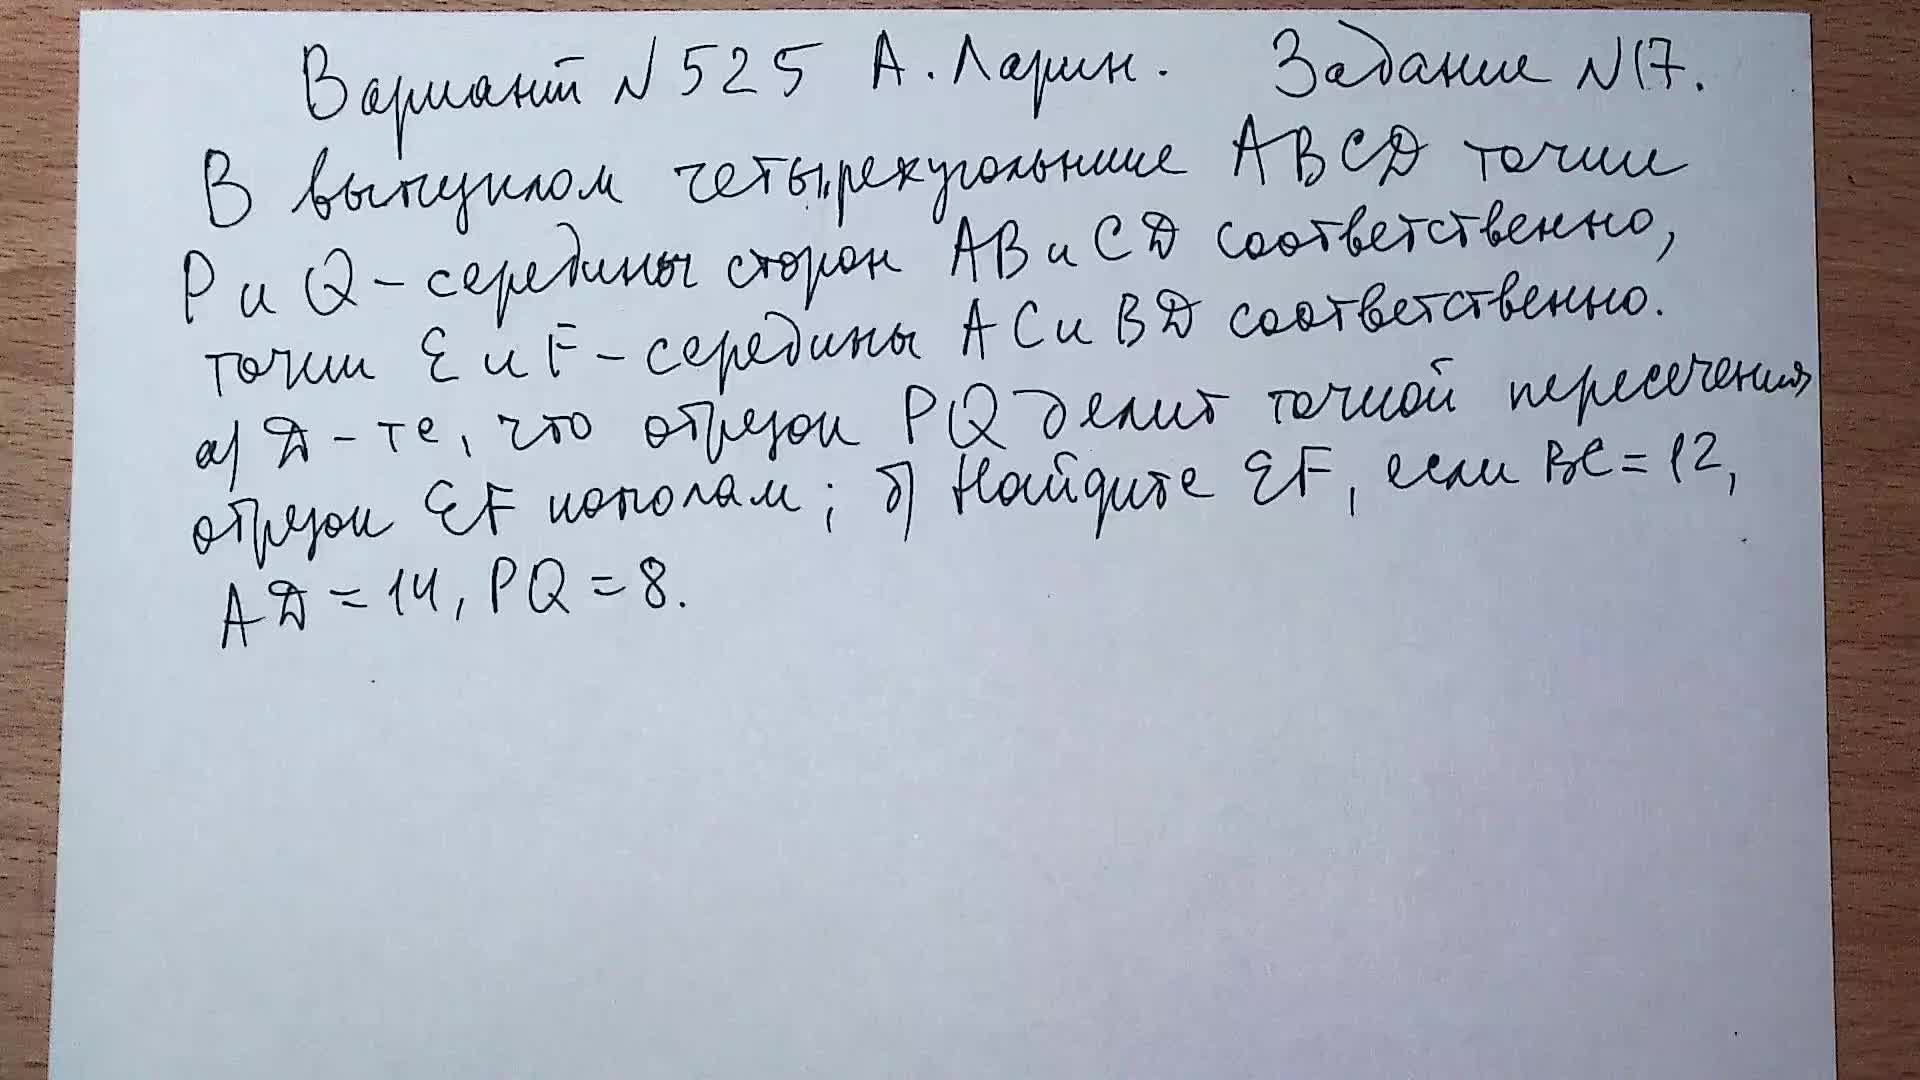 Вариант N 525 А. Ларин. Задание N17.
В выпуклом четырехугольнике ABCD точки
P и Q - середины сторон AB и CD соответственно,
точки E и F - середины AC и BD соответственно.
а) Д-те, что отрезок PQ делит точкой пересечения
отрезок EF пополам; б) Найдите EF, если BC = 12,
AD = 14, PQ = 8.